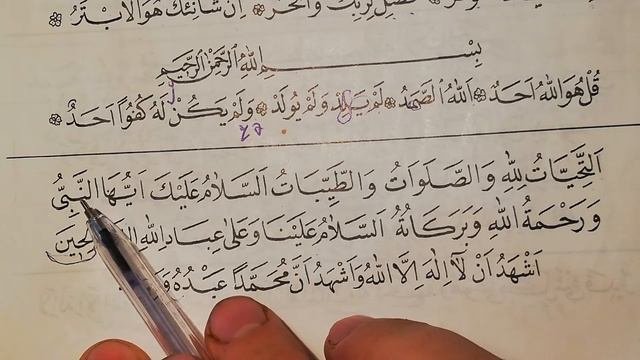 فَصَلِّ لِرَبِّكَ وَانْحَرْ ۞ اِنَّ شَانِئَكَ هُوَ الْاَبْتَرُ ۞
بِسْمِ اللهِ الرَّحْمٰنِ الرَّحِيمِ
قُلْ هُوَ اللهُ اَحَدٌ ۞ اَللهُ الصَّمَدُ ۞ لَمْ يَلِدْ وَلَمْ يُولَدْ ۞ وَلَمْ يَكُنْ لَهُ كُفُوًا اَحَدٌ ۞
اَلتَّحِيَّاتُ لِلّٰهِ وَالصَّلَوَاتُ وَالطَّيِّبَاتُ اَلسَّلَامُ عَلَيْكَ اَيُّهَا النَّبِيُّ
وَرَحْمَةُ اللهِ وَبَرَكَاتُهُ اَلسَّلَامُ عَلَيْنَا وَعَلٰى عِبَادِ اللهِ
اَشْهَدُ اَنْ لَا اِلٰهَ اِلَّا اللهُ وَاَشْهَدُ اَنَّ مُحَمَّدًا عَبْدُهُ